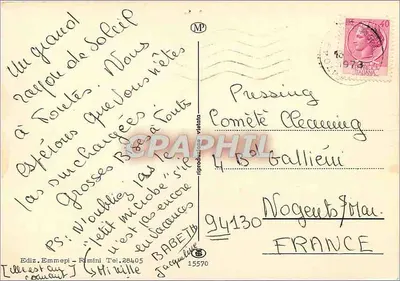 Un grand
rayon de Soleil
à Toutes. Nous
espérons que Vous n'êtes
pas surchargées.
Grosses Bises à Toute
PS: N'oubliez pas le
"petit microbe" s'il
n'est pas encore
en vacances
BABETH
Jacqueline
Mireille
Ediz. Emmepi - Rimini Tel. 28405
15570
MP
riproduzione vietata
CPARAMA
1973
Pressing
Cométe Cleaning
4 Bd Galliéni
94130
Nogent s/Mar.
FRANCE